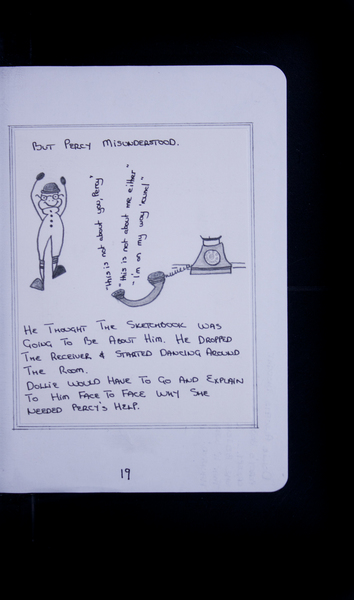 But Percy Misunderstood.
"This is not about you, Percy"
"this is not about me either"
"I'm on my way round"
He Thought The Sketchbook was
Going To Be About Him. He Dropped
The Receiver & Started Dancing Around
The Room.
Dollie Would Have To Go And Explain
To Him Face To Face Why She
Needed Percy's Help.
19